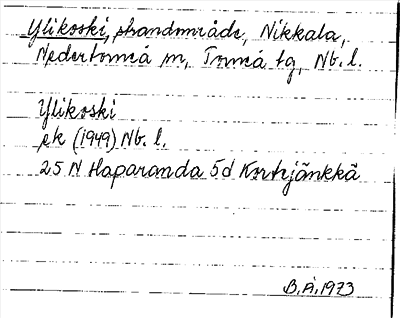 Ylikoski, strandområde, Nikkala,
Nedertorneå sn, Torneå tg, Nb. l.
Ylikoski
ek (1949) Nb. l.
25 N Haparanda 5d Kortejänkkä
B.Å. 1973